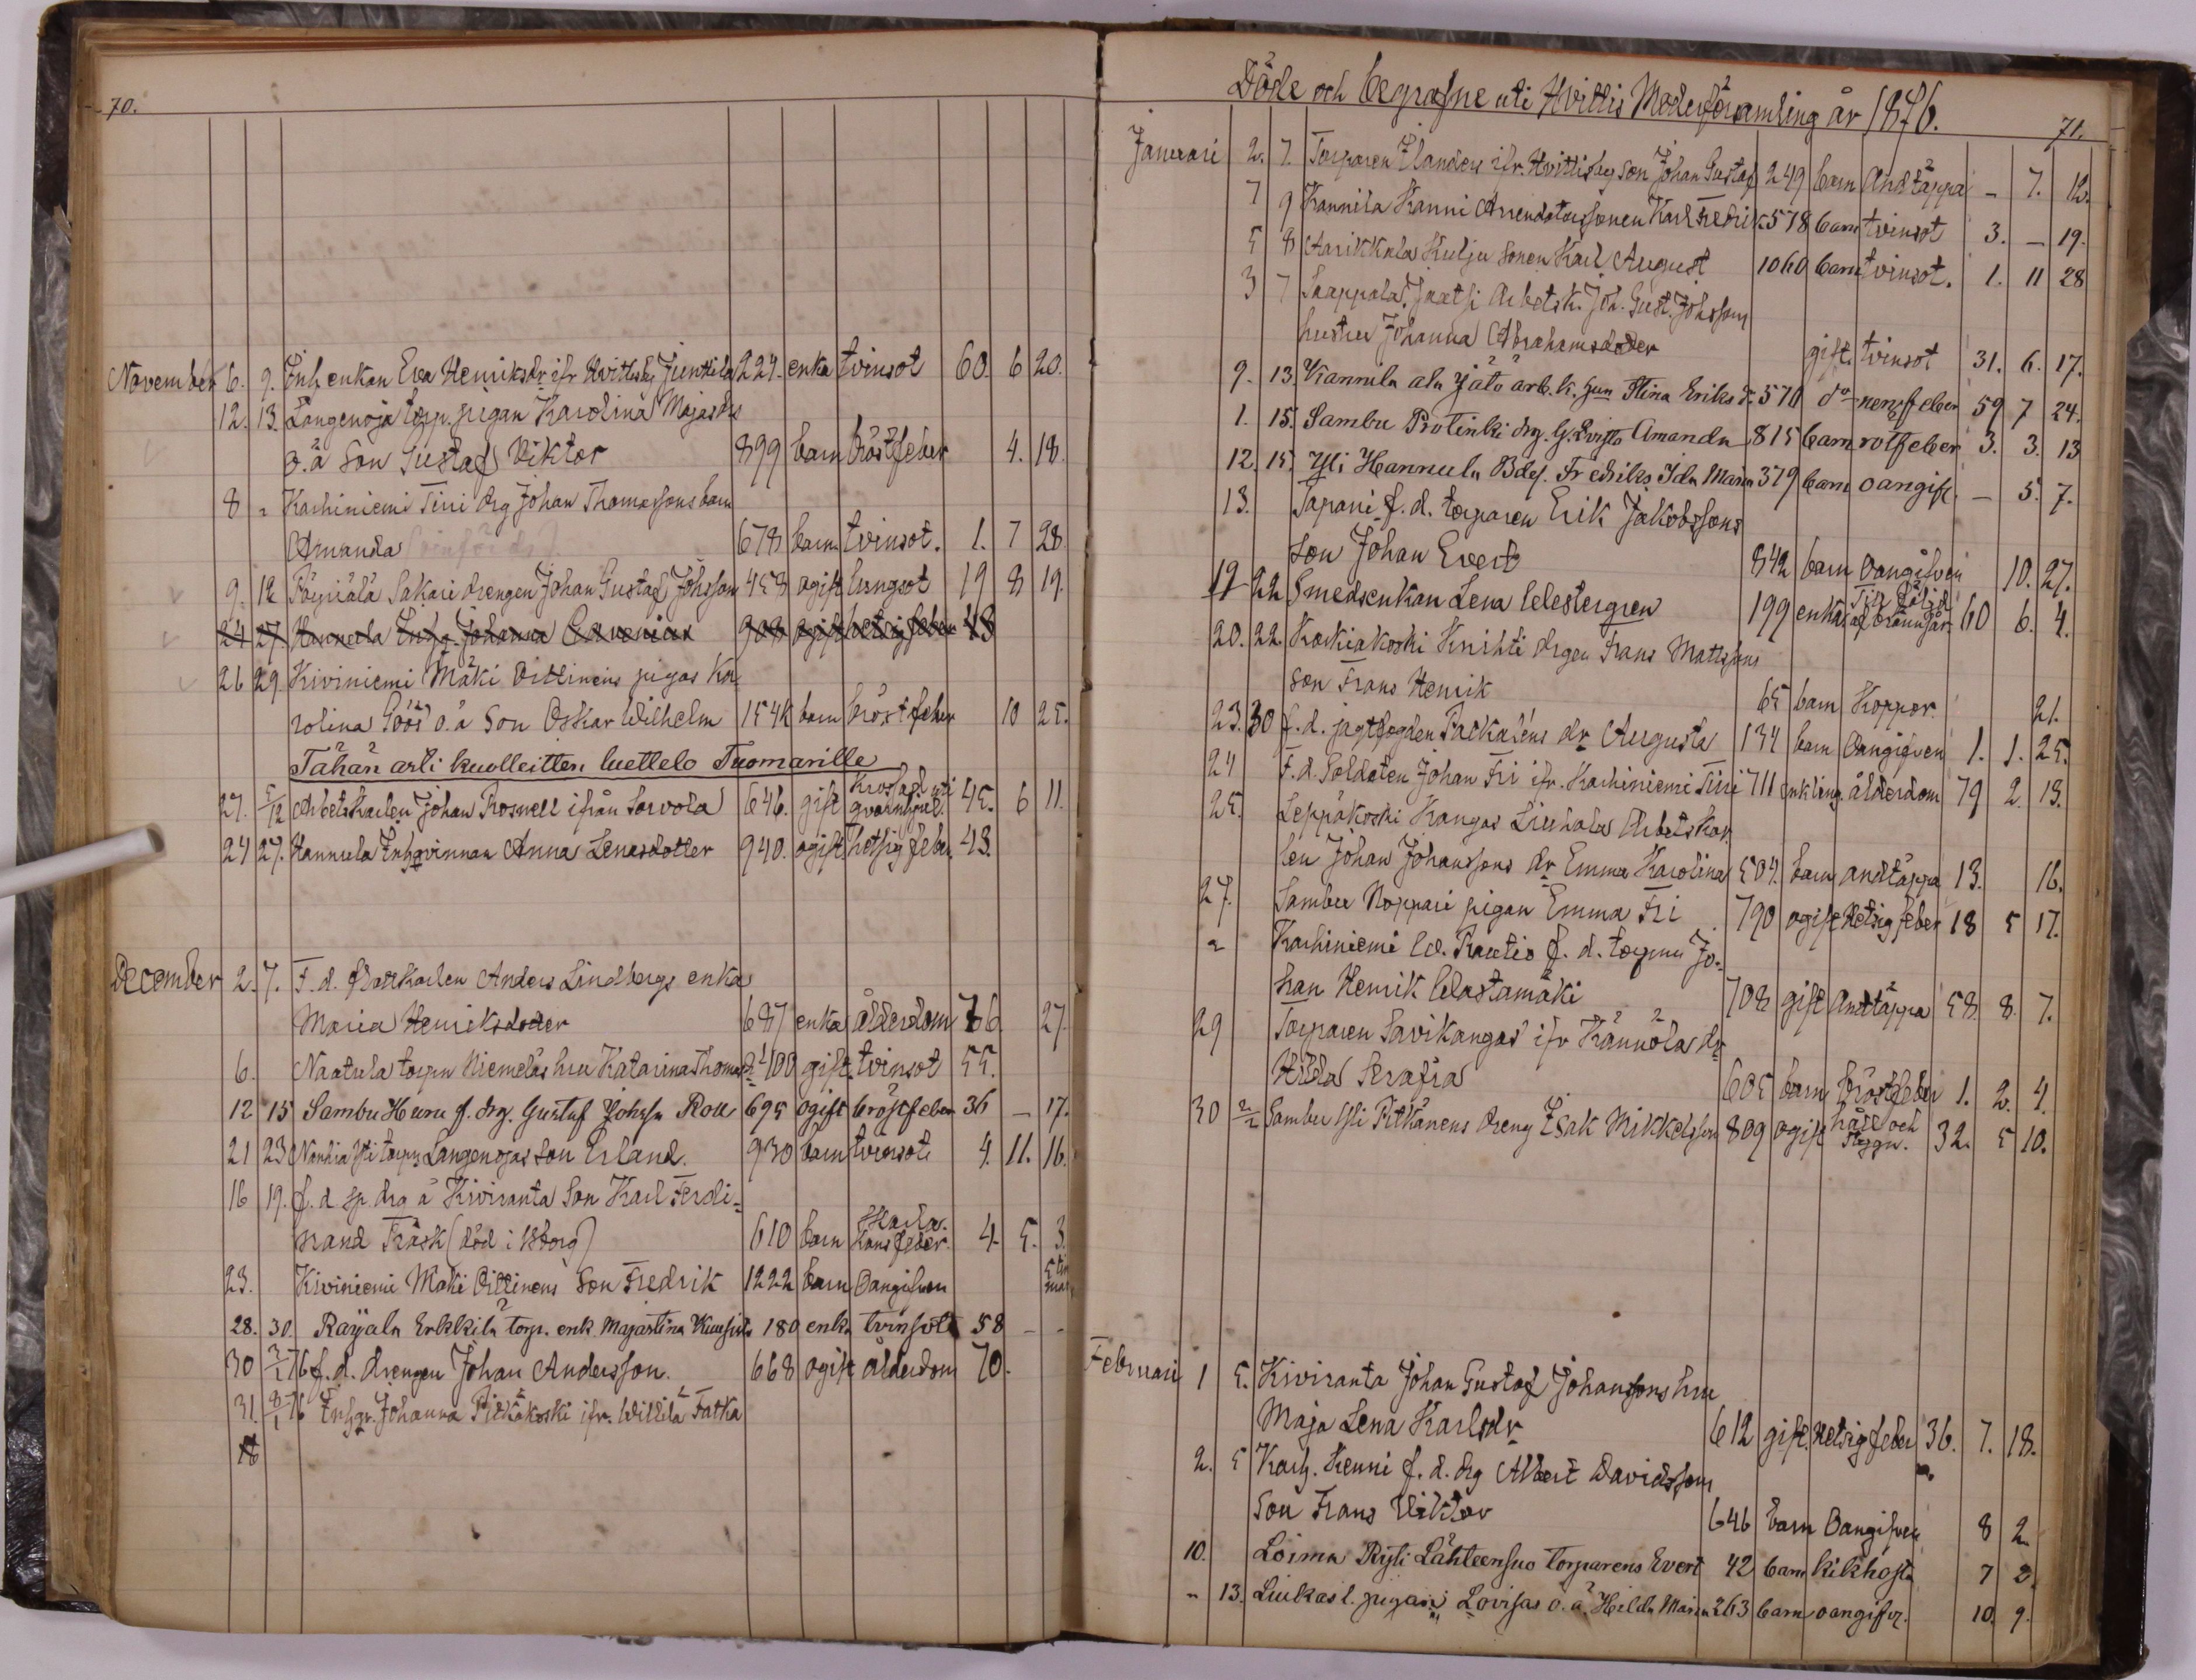 70.
November 6. 9. Inh enkan Eva Henriksdr ifr Hvittisby Junttila 224. enka tvinsot 60. 6 20.
12. 13. Längenoja torp. pigan Karolina Majasdrs
o.ä son Gustaf Viktor 899 barn bröstfeber 4. 18.
8 " Karhiniemi Tiiri drg Johan Thomassons barn
Amanda 678 barn tvinsot. 1. 7 28.
9. 12 Sakari drengen Johan Gustaf Johsson 458 ogift lungsot 19 8 19.
24 27. Hannula Inhq. Johanna 908 ogift hetsigfeber 48
26 29. Kiviniemi Mäki Oittinens pigas Ka-
rolina Göös o.ä Son Oskar Wilhelm 154k barn bröstfeber 10 25.
Tähän asti kuolleitten luettelo Tuomarille
27. 5/12 Arbetskarlen Johan Rosnell ifrån Sorvola 646. gift Krossad uti qvarnhjul. 45. 6 11.
24 27. Hannula Inhqvinnan Anna Lenasdotter 940. ogift hetsig feber 43.
December 2. 7. F. d. Rotkarlen Anders Lindbergs enka
Maria Henriksdoder 687 enka ålderdom 76 27.
6. Naatula torpn Niemeläs hru Katarina Thomasdr 400 gift. tvinsot 55.
12 15 Sambu Huru f. drg. Gustaf Johssn Rou 695 ogift bröstfeber 36 – 17.
21 23 Nanhia Yli torpn Längenojas son Erland. 930 barn tvinsot 4. 11. 16.
16 19. f. d. sp. drg ä Kiviranta Son Karl Ferdi-
nand Fräsk (död i Wborg) 610 barn Skarla- kansfeber. 4. 5. 3.
23. Kiviniemi Mäki Oittinens Son Fredrik 1222 barn Oangifven 5 tim mar
28. 30. Raijala Erkkilä torp. enk. Majastina Kuusisto 180 enka tvinsot 58 – –
30 3/1 76 f. d. drengen Johan Andersson. 668 ogift ålderdom 70.
31. 8/1 76 Inhqv. Johanna Pitkäkoski ifr. Willilä Fatka
Döde och begrafne uti Hvittis Moderförsamling år 1876.
71.
Januari 2. 7. Torparen Ilanders ifr. Hvittisby son Johan Gustaf 249 barn Andtäppa – 7. 12.
7 9 Kannila Hanni Arrendatorssonen Karl Fredrik 578 barn tvinsot 3. – 19.
5 8 Karikkala Kulju sonen Karl August 1060 barn tvinsot. 1. 11 28
3 7 Saappala Jaatsi Arbetsk. Joh. Gust. Johssons
hustru Johanna Abrahamsdoder gift. tvinsot 31. 6. 17.
9. 13. Kannila ala Jätö arb. k. hun Stina Eriks d. 570 do nervfeber 59 7 24.
1. 15. Sambu Protinki drg. G. Qvists Amanda 815 barn rötfeber 3. 3. 13
12. 15. Yli Hannula Bdes. Fredriks Ida Maria 379 barn oangif. – 5. 7.
13. Tapani f. d. torparen Erik Jakobssons
son Johan Evert 842 barn Oangifven 10. 27.
19 22 Smedsenkan Lena Westergren 199 enka Till följd af brännsår 60 6. 4.
20. 22. Koskiakoski Knihti drgen Frans Mattssons
son Frans Henrik 65 barn Koppor. 21.
23. 30 f. d. jagtfogden Packaléns dr Augusta 134 barn Oangifven 1. 1. 25.
24 F. d. Soldaten Johan Fri ifr. Karhiniemi Tiiri 711 enkling. ålderdom 79 2. 13.
25. Leppäkoski Kangas Liuhala Arbetskar-
len Johan Johanssons dr Emma Karolina 504. barn andtäppa 13. 16.
27. Sambu Noppari pigan Emma Fri 790 ogift Hetsig feber 18 5 17.
" Karhiniemi W. Rautio f. d. torpen Jo-
han Henrik Wastamäki 708 gift Andtäppa 58. 8. 7.
29 Torparen Savikangas ifr Kännölä dr
Hilda Serafia 605 barn bröstfeber 1. 2. 4.
30 2/2 Sambu Yli Pitkänens dreng Isak Mikkelsson 809 ogift håll och stygn. 32. 5 10.
Februari 1 5. Kiviranta Johan Gustaf Johanssons hru
Maja Lena Karlsdr 612 gift. Hetsigfeber 36. 7. 18.
2. 5 Karh. Kenni f. d. drg Albert Davidssons
Son Frans Viktor 646 barn Oangifven 8 2
10. Loima Ryti Lähteensuo torparens Evert 42 barn kikhosta 7 2.
" 13. Liukas l. pigan Lovisas o. ä. Hilda Maria 263 barn oangifv. 10. 9.